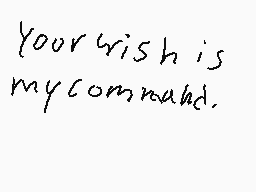 your wish is
my command.